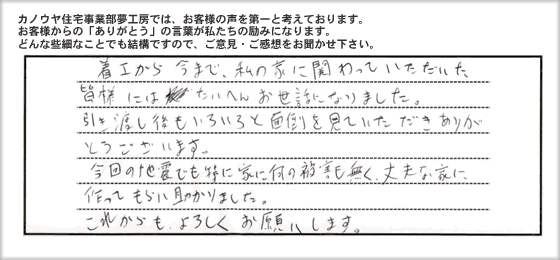 カノウヤ住宅事業部夢工房では、お客様の声を第一と考えております。
お客様からの「ありがとう」の言葉が私たちの励みになります。
どんな些細なことでも結構ですので、ご意見・ご感想をお聞かせ下さい。
着工から今まで、私の家に関わっていただいた
皆様にはたいへんお世話になりました。
引き渡し後もいろいろと面倒を見ていただきありが
とうございます。
今回の地震でも特に家に何の被害も無く、丈夫な家に
作ってもらい助かりました。
これからも、よろしくお願いします。